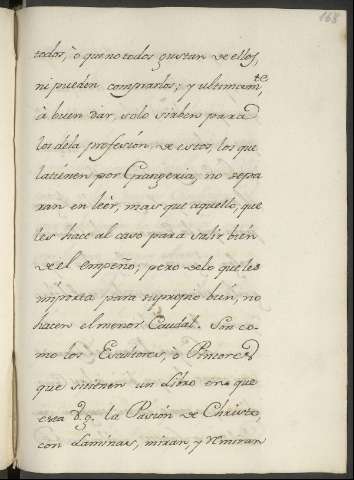 168
todos, ò que no todos gustan de ellos,
ni pueden comprarlos; y ultimam.te
à buen dar, solo sirben para
los de la profesión. de estos, los que
la tienen por Grangeria, no repa
ran en leèr, mas que aquello, que
les hace al caso para salir bien
de el empeño; pero de lo que les
importa para su propio bien, no
hacen el menor Caudal. Son co-
mo los Escultores, ò Pintores
que si tienen un Libro en que
està la Pasión de Christo,
con Laminas, miran, y remiran